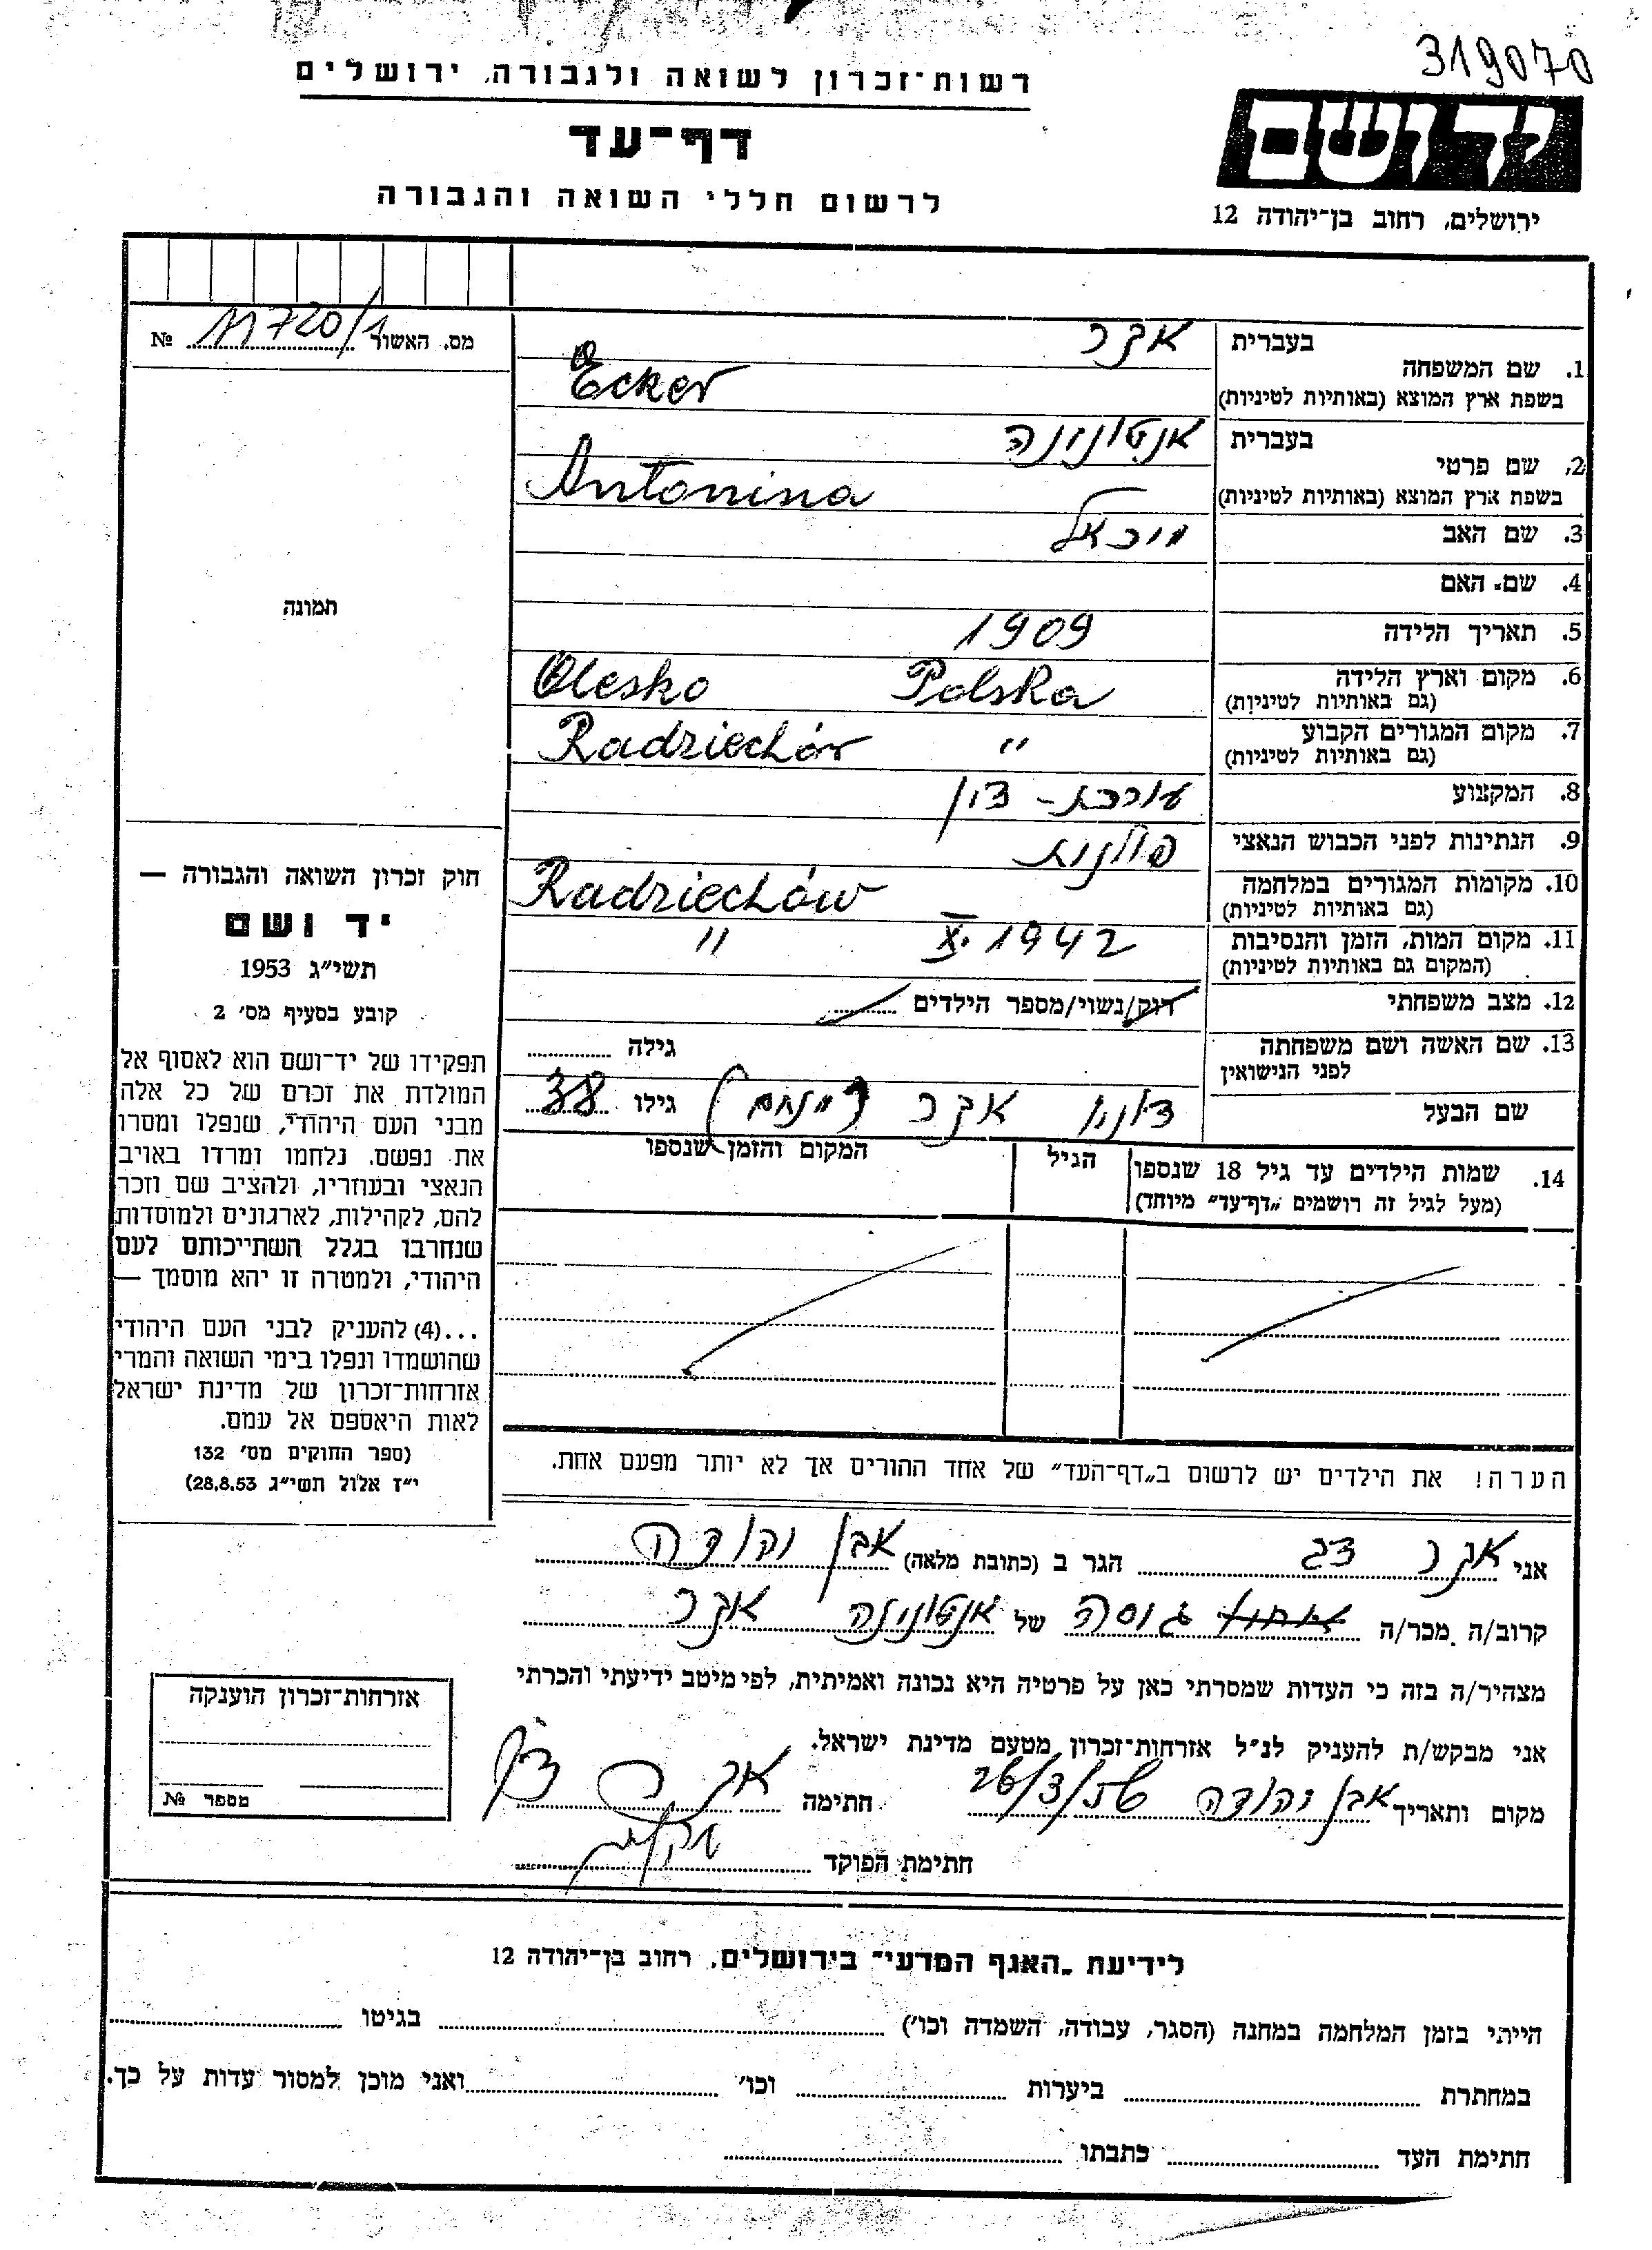 319070
רשות־זכרון לשואה ולגבורה, ירושלים
דף־עד
לרשום חללי השואה והגבורה
יד ושם
ירושלים, רחוב בן־יהודה 12
מס. האשור 11720/1 №
תמונה
חוק זכרון השואה והגבורה —
יד ושם
תשי״ג 1953
קובע בסעיף מס׳ 2
תפקידו של יד־ושם הוא לאסוף אל
המולדת את זכרם של כל אלה
מבני העם היהודי, שנפלו ומסרו
את נפשם, נלחמו ומרדו באויב
הנאצי ובעוזריו, ולהציב שם וזכר
להם, לקהילות, לארגונים ולמוסדות
שנחרבו בגלל השתייכותם לעם
היהודי, ולמטרה זו יהא מוסמך —
...(4) להעניק לבני העם היהודי
שהושמדו ונפלו בימי השואה והמרי
אזרחות־זכרון של מדינת ישראל
לאות היאספם אל עמם.
(ספר החוקים מס׳ 132
י״ז אלול תשי״ג 28.8.53)
בעברית אקר
1. שם המשפחה
בשפת ארץ המוצא (באותיות לטיניות) Ecker
בעברית אנטונינה
2. שם פרטי
בשפת ארץ המוצא (באותיות לטיניות) Antonina
3. שם האב מיכאל
4. שם האם
5. תאריך הלידה 1909
6. מקום וארץ הלידה Olesko Polska
(גם באותיות לטיניות)
7. מקום המגורים הקבוע Radziechów "
(גם באותיות לטיניות)
8. המקצוע עורכת-דין
9. הנתינות לפני הכבוש הנאצי פולנית
10. מקומות המגורים במלחמה Radziechów
(גם באותיות לטיניות)
11. מקום המות, הזמן והנסיבות " X. 1942
(המקום גם באותיות לטיניות)
12. מצב משפחתי רוק/נשוי/מספר הילדים
13. שם האשה ושם משפחתה גילה
לפני הנישואין
שם הבעל אקר גילו 38
14. שמות הילדים עד גיל 18 שנספו הגיל המקום והזמן שנספו
(מעל לגיל זה רושמים „דף־עד״ מיוחד)
הערה! את הילדים יש לרשום ב„דף־העד״ של אחד ההורים אך לא יותר מפעם אחת.
אני אקר דב הגר ב (כתובת מלאה) אבן יהודה
קרוב/ה מכר/ה גיסה של אנטונינה אקר
מצהיר/ה בזה כי העדות שמסרתי כאן על פרטיה היא נכונה ואמיתית, לפי מיטב ידיעתי והכרתי
אני מבקש/ת להעניק לנ״ל אזרחות־זכרון מטעם מדינת ישראל.
מקום ותאריך אבן יהודה חתימה אקר דב
חתימת הפוקד
אזרחות־זכרון הוענקה
מספר №
לידיעת „האגף המדעי״ בירושלים, רחוב בן־יהודה 12
הייתי בזמן המלחמה במחנה (הסגר, עבודה, השמדה וכו׳) בגיטו
במחתרת ביערות וכו׳ ואני מוכן למסור עדות על כך.
חתימת העד כתבתו